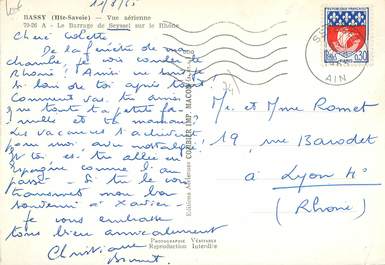 BASSY (Hte-Savoie) — Vue aérienne
79-26 A - Le Barrage de Seyssel sur le Rhône
Chère Colette
De la fenêtre de ma
chambre, je vois couler le
Rhône !
si loin de toi après tout !
Comment vas-tu ainsi
que toute ta petite fa-
mille et ta maman ?
Les vacances s'achèvent
pour moi, avec nostalgie !
Et toi es-tu allée en
Espagne comme l'an
passé - Si tu le vois
transmet mon bon
souvenir à Xavier -
je vous embrasse
tous bien amicalement
Christiane
Editions Aériennes COMBIER IMP. MACON
Photographie Véritable
Reproduction Interdite
REPUBLIQUE FRANÇAISE
0,30
AIN
Mr. et Mme Romet
19, rue Barodet
à Lyon 4°
(Rhône)